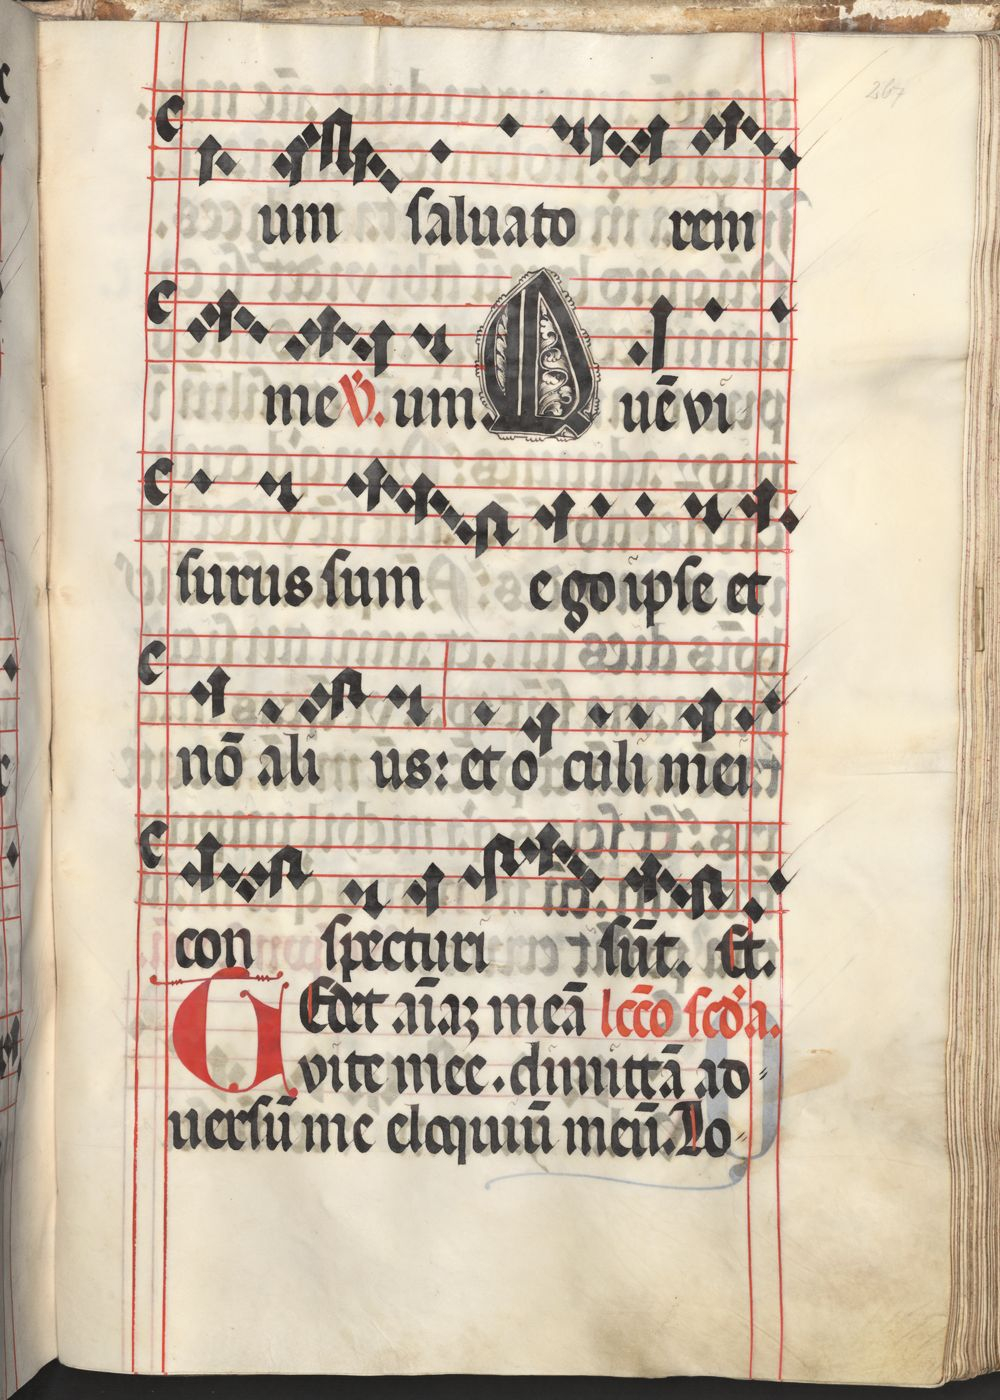 um saluato rem
me℣. um. Quē vi
surus sum ego ipse et
nō ali us: et oculi mei
con specturi sūt. Et.
Tedet aīaꝫ meā lcc̄o scd̄a.
vite mee. dimittā ad
uersū me eloquiū meū. Lo